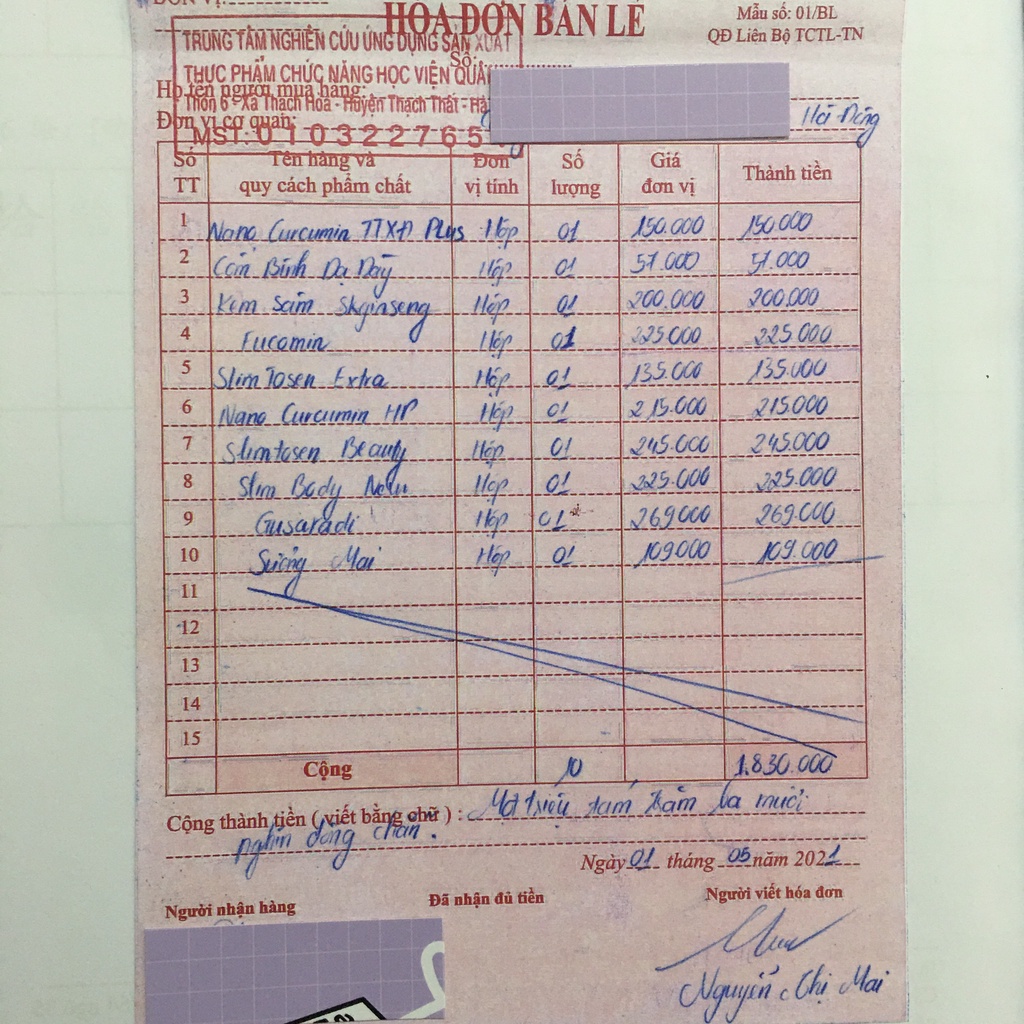 ĐƠN VỊ:
HÓA ĐƠN BÁN LẺ
Mẫu số: 01/BL
QĐ Liên Bộ TCTL-TN
TRUNG TÂM NGHIÊN CỨU ỨNG DỤNG SẢN XUẤT
Số:
THỰC PHẨM CHỨC NĂNG HỌC VIỆN QUÂ
Họ tên người mua hàng:
Thôn 6 - Xã Thạch Hoà - Huyện Thạch Thất - Hà
Đơn vị cơ quan:
Hà Đông
MST: 010322765
Số TT Tên hàng và quy cách phẩm chất Đơn vị tính Số lượng Giá đơn vị Thành tiền
1 Nano Curcumin TTXD Plus Hộp 01 150.000 150.000
2 Cốm Bình Dạ Dày Hộp 01 57.000 57.000
3 Kem Sâm Skginseng Hộp 01 200.000 200.000
4 Fucomin Hộp 01 225.000 225.000
5 Slim Tosen Extra Hộp 01 135.000 135.000
6 Nano Curcumin HP Hộp 01 215.000 215.000
7 Slimtosen Beauty Hộp 01 245.000 245.000
8 Slim Body New Hộp 01 225.000 225.000
9 Gusaradi Hộp 01 269000 269.000
10 Sương Mai Hộp 01 109000 109.000
11
12
13
14
15
Cộng 10 1.830.000
Cộng thành tiền ( viết bằng chữ ) : Một triệu tám trăm ba mươi
nghìn đồng chẵn.
Ngày 01 tháng 05 năm 2021
Người nhận hàng Đã nhận đủ tiền Người viết hóa đơn
Nguyễn Thị Mai